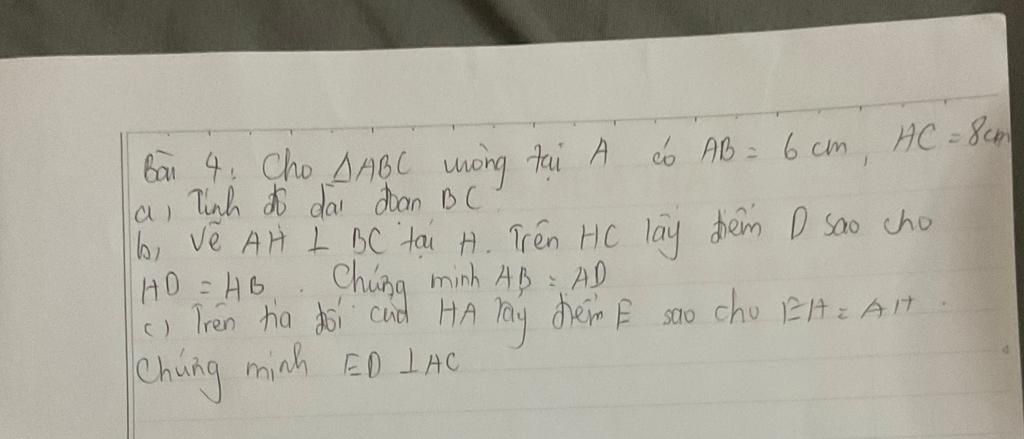 Bài 4: Cho ΔABC vuông tại A có AB = 6 cm, AC = 8cm
a, Tính độ dài đoạn BC
b, Vẽ AH ⊥ BC tại H. Trên HC lấy điểm D sao cho
HD = HB. Chứng minh AB = AD
c) Trên tia đối của HA lấy điểm E sao cho EH = AH.
Chứng minh ED ⊥ AC